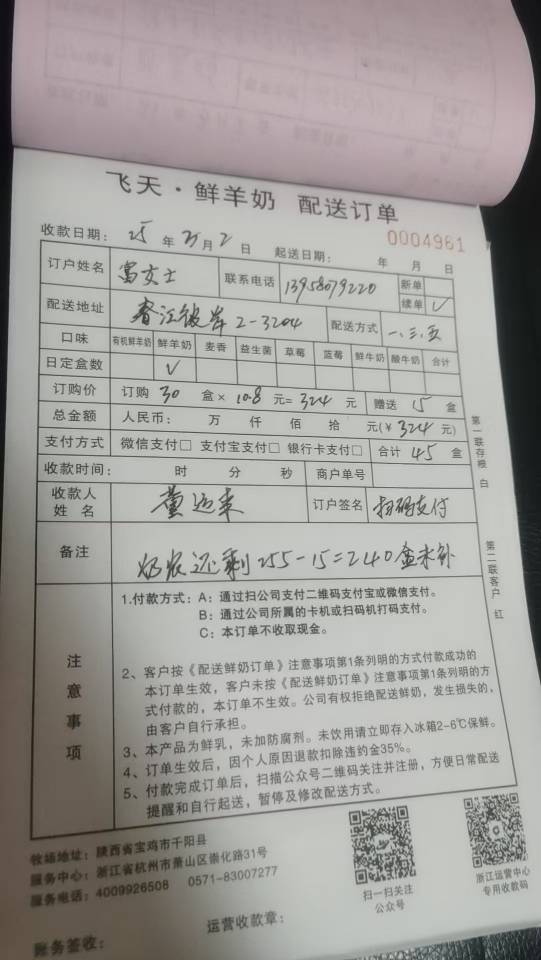 飞天·鲜羊奶 配送订单
0004961
收款日期: 25 年 月 2 日 起送日期: 年 月 日
订户姓名 富女士 联系电话 13958079220 新单
续单 √
配送地址 春江彼岸 2-3204 配送方式 一、三、五
口味 有机鲜羊奶 鲜羊奶 麦香 益生菌 草莓 蓝莓 鲜牛奶 酸牛奶 合计
日定盒数 √
订购价 订购 30 盒× 10.8 元= 324 元 赠送 15 盒
总金额 人民币: 万 仟 佰 拾 元(¥ 324 元)
支付方式 微信支付□ 支付宝支付□ 银行卡支付□ 合计 45 盒
收款时间: 时 分 秒 商户单号
收款人姓名 董运来 订户签名 扫码支付
备注 奶农还剩255-15=240盒未补
第一联存根 白
第二联客户 红
注意事项
1.付款方式: A: 通过扫公司支付二维码支付宝或微信支付。
B: 通过公司所属的卡机或扫码机打码支付。
C: 本订单不收取现金。
2、客户按《配送鲜奶订单》注意事项第1条列明的方式付款成功的
本订单生效，客户未按《配送鲜奶订单》注意事项第1条列明的方
式付款的，本订单不生效。公司有权拒绝配送鲜奶，发生损失的，
由客户自行承担。
3、本产品为鲜乳，未加防腐剂。未饮用请立即存入冰箱2-6℃保鲜。
4、订单生效后，因个人原因退款扣除违约金35%。
5、付款完成订单后，扫描公众号二维码关注并注册，方便日常配送
提醒和自行起送，暂停及修改配送方式。
牧场地址: 陕西省宝鸡市千阳县
服务中心: 浙江省杭州市萧山区崇化路31号
服务电话: 4009926508 0571-83007277
扫一扫关注
公众号
浙江运营中心
专用收款码
运营收款章:
账务签收: